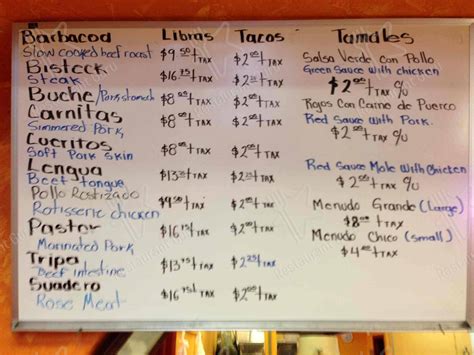 Barbacoa Libras Tacos Tamales
Slow cooked beef roast $9.50+TAX $2.00+TAX Salsa Verde con Pollo
Bisteck Green Sauce with chicken
Steak $16.75+TAX $2.00+TAX $2.00+TAX %
Buche/Pork stomach $8.00+TAX $2.00+TAX Rojos Con Carne de Puerco
Carnitas Red Sauce with Pork.
Simmered Pork $8.00+TAX $2.00+TAX $2.00+TAX %
Cueritos
Soft Pork Skin $8.00+TAX $2.00+TAX
Lengua Red Sauce Mole With Chicken
Beef tongue $2.25+TAX $2.00+TAX %
Pollo Rostizado Menudo Grande (Large)
Rotisserie chicken $9.50+TAX $2.00+TAX $8.00+TAX
Pastor Menudo Chico (small)
Marinated Pork $16.75+TAX $2.00+TAX $4.00+TAX
Tripa
Beef intestine $13.75+TAX $2.25+TAX
Suadero
Rose Meat $16.75+TAX $2.00+TAX